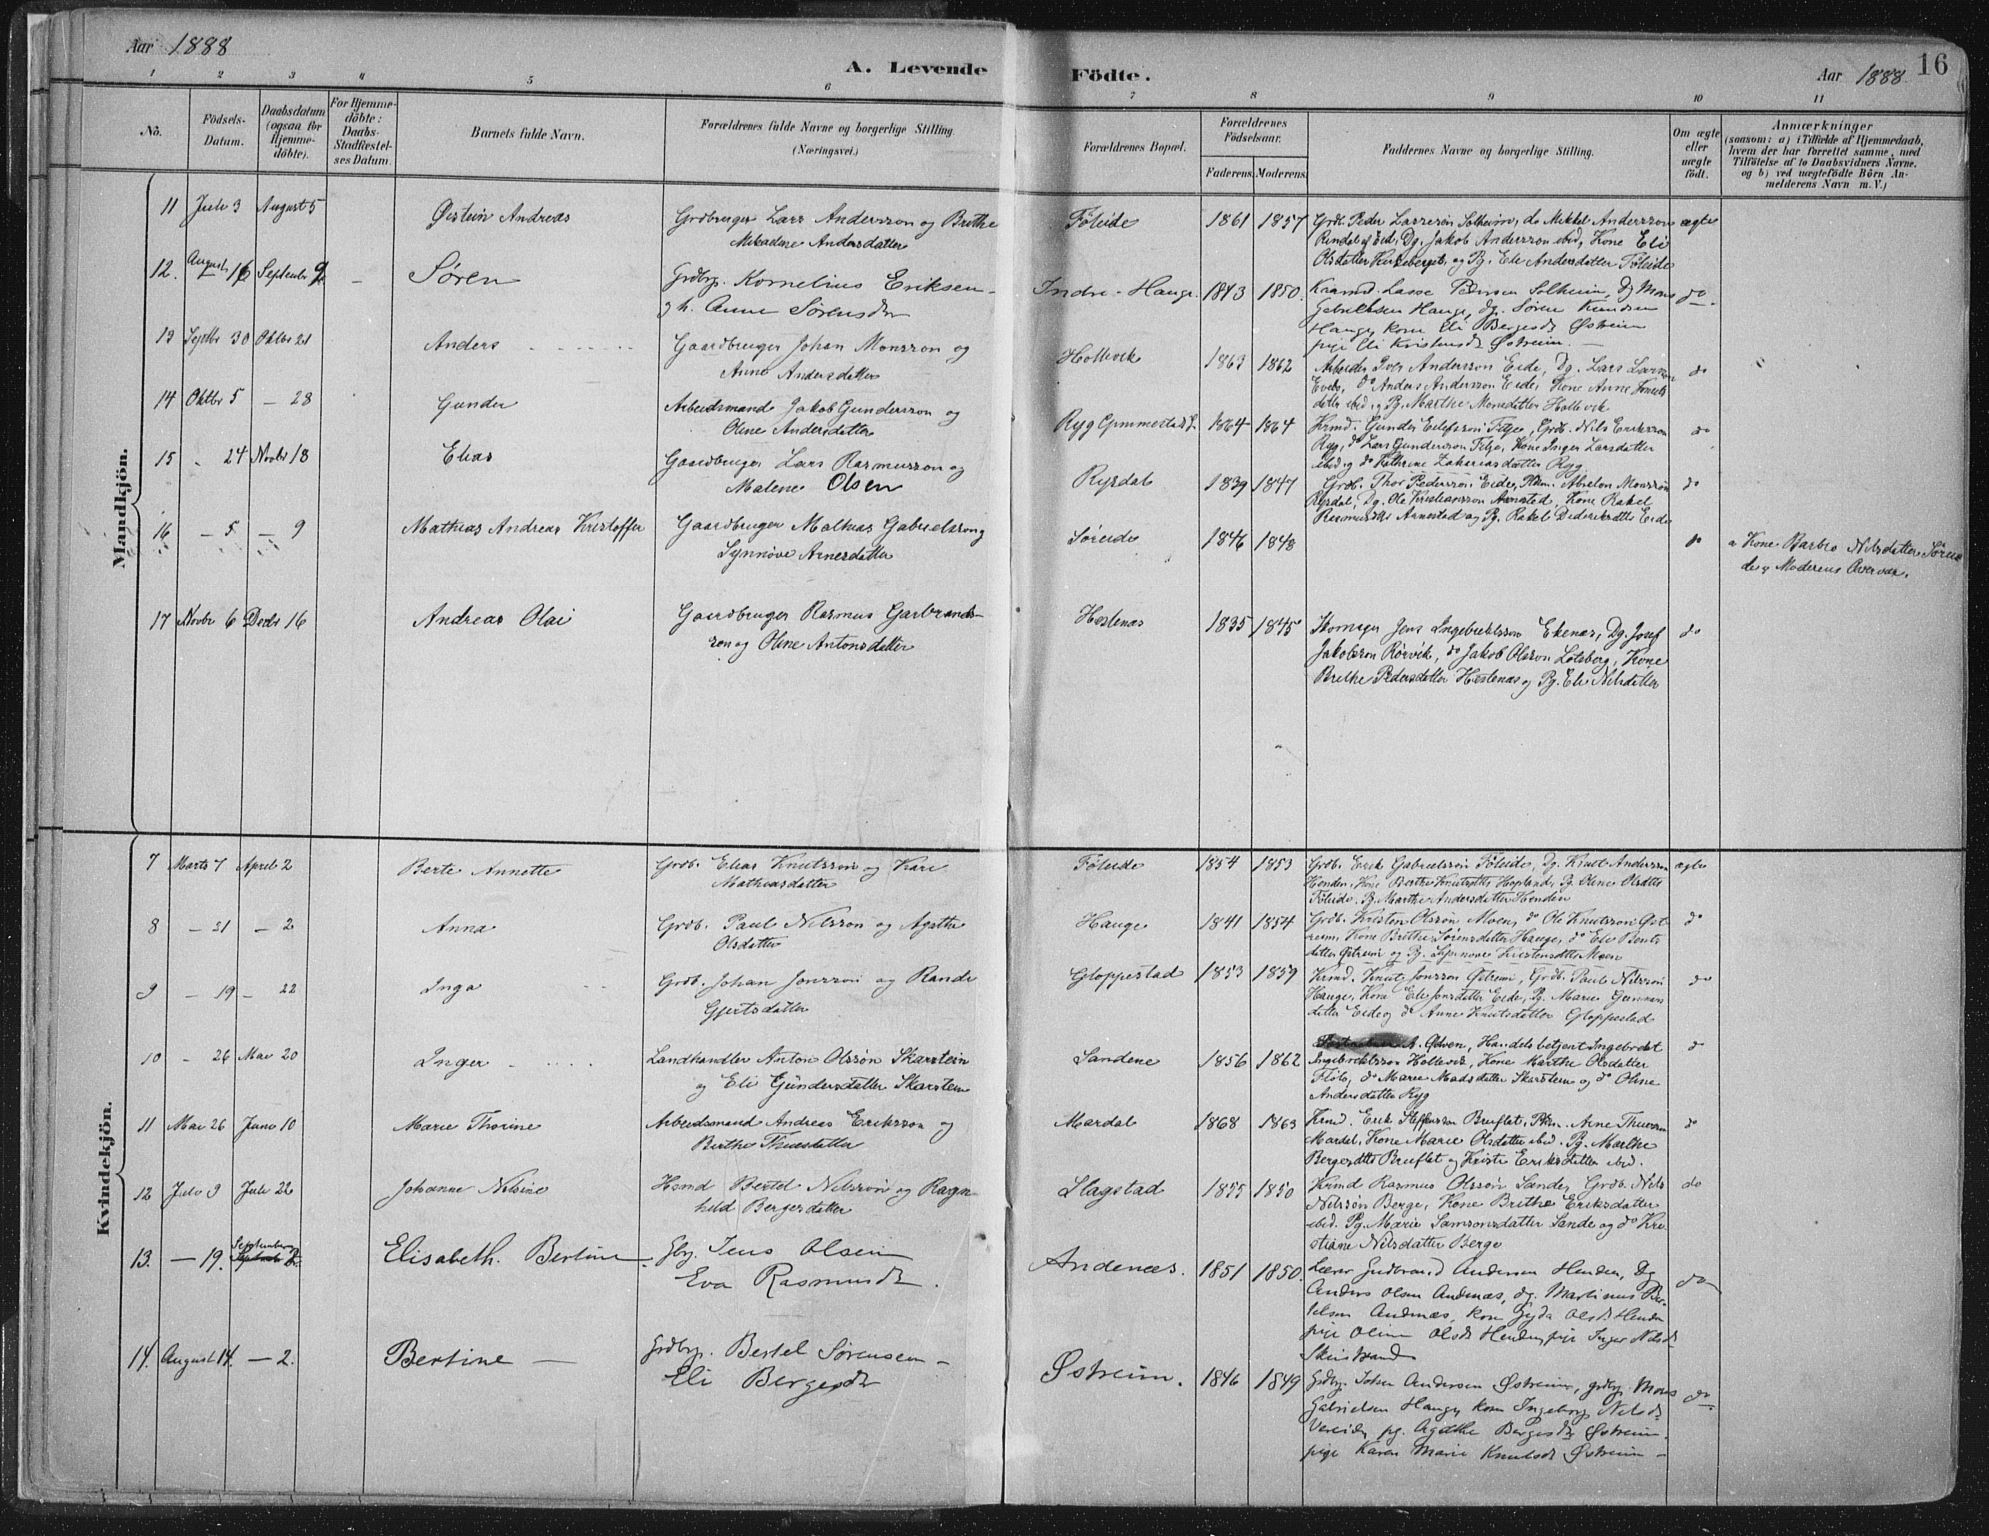 Aar 1888
A. Levende
Födte.
Aar 1888
16
1 2 3 4 5 6 7 8 9 10 11
No.
Födsels-
Datum.
Daabsdatum
(ogsaa for
Hjemme-
döbte).
For Hjemme-
döbte:
Daabs-
Stadfæstel-
ses Datum.
Barnets fulde Navn.
Forældrenes fulde Navne og borgerlige Stilling.
(Næringsvei.)
Forældrenes Bopæl.
Forældrenes
Födselsaar.
Faderens. Moderens.
Faddernes Navne og borgerlige Stilling.
Om ægte
eller
uægte
födt.
Anmærkninger
(saasom: a) i Tilfælde af Hjemmedaab,
hvem der har forrettet samme, med
Tilföielse af to Daabsvidners Navne,
og b) ved uægtefödte Börn An-
melderens Navn m. V.)
Mandkjön.
11 Juli 3 August 5 Øistein Andreas Grdbruger Lars Andersson og Brithe
Mikaeline Andersdatter
Föleide 1861 1857 Grdb. Peder Lassesön Solheim, do Mikkel Andersson ægte
Rindal af Eid, Dg. Jakob Andersson ibid, Kone Eli
Olsdatter og Pg. Eli Andersdatter Föleide
12. August 16 September 9 – Søren Grdbr. Kornelius Eriksen
og h. Anne Sørensdr
Indre-Hauge. 1843 1850. Lasse Pedersen Solheim, Dg Mons do
Gabrielsen Hauge, dg. Søren Knudsen
Hauge, kone Eli Bergesdr Østreim
pige Eli Kristensdr Østreim. –
13 Septbr 30 Oktbr 21 Anders Gaardbruger Johan Monsson og
Anne Andersdatter
Hollevik 1863 1862 Arbeider Iver Andersson Eide, Dg. Lars Larsson do
Evebö, do Anders Andersson Eide, Kone Anne Knuts
datter ibid. og Pg. Marthe Monsdatter Hollevik
14 Oktbr 5 – 28 Gunder Arbeidsmand Jakob Gundersson og
Oline Andersdatter
Ryg Gimmestad S. 1864 1864 Krmd. Gunder Eilefsson Felje, Grdb. Nils Eriksson do
Ryg, do Lars Gundersson Felje, Kone Inger Larsdatter
ibid og do Kathrine Zakariasdatter Ryg
15 – 24 Novbr 18 Elias Gaardbruger Lars Rasmusson og
Malene Olsen
Rysdal 1839 1847 Grdb. Thor Pedersson Eide, Absalon Monsson do
Rysdal, Dg. Ole Kristiansson Arnestad, Kone Rakel
Rasmusdtr Arnestad og Pg. Rakel Didriksdtr Eide
16 – 5 – 9 Mathias Andreas Kristoffer Gaardbruger Mathias Gabrielsson og
Synnöve Arnesdatter
Söreide 1846 1848 do a Kone Barbro Nilsdatter Sörei
de og Moderens
17 Novbr 6 Decbr 16 Andreas Olai Gaardbruger Rasmus Garbrands-
son og Oline Antonsdatter
Hestenæs 1835 1845 Skomager Jens Ingebrektsson Ekenæs, Dg. Josef do
Jakobsson Rörvik, do Jakob Olsson Lotsberg, Kone
Brithe Pedersdatter Hestenæs og Pg. Eli Nilsdatter
Kvindekjön.
7 Marts 7 April 2 Berte Annette Grdb. Elias Knutsson og Kari
Mathiasdatter
Föleide 1854 1853 Grdb. Erik Gabrielsson Föleide, Dg. Knut Andersson ægte
Henden, Kone Berthe Knutsdtr Hopland, Pg. Oline Olsdtr
Föleide, Pg. Marthe Andersdatter Henden
8 – 21 – 2 Anna Grdb. Paul Nilsson og Agathe
Olsdatter
Hauge 1841 1854 Grdb. Kristen Olsson Moen, do Ole Knutsson Öst- do
reim, Kone Brithe Sörensdatter Hauge, do Eli Bents
datter Östreim og Pg. Synnöve Kristensdatter Moen
9 – 19 – 22 Inga Grdb. Johan Jonsson og Randi
Gjertsdatter
Gloppestad 1853 1859 Krmd. Knut Jonsson Östreim, Grdb. Paul Nilsson do
Hauge, Kone Eli Jonsdatter Eide, Pg. Marie
datter Eide og do Anne Knutsdatter Gloppestad
10 – 26 Mai 20 Inger Landhandler Anton Olsson Skarstein
og Eli Gundersdatter Skarstein
Sandene 1856 1862 A. Ödven, Handelsbetjent Ingebrekt do
Ingebrektsson Hollevik, Kone Marthe Olsdatter
Flölo, do Marie Madsdatter Skarstein og do Oline
Andersdatter Ryg
11 Mai 26 Juni 10 Marie Thorine Arbeidsmand Andreas Eriksson og
Berthe Thuesdatter
Mardal 1868 1863 Krmd. Erik Steffensson Bruflat, Arne Thuesson do
Mardal, Kone Marie Olsdatter ibid. Pg. Marthe
Bergesdtr Bruflat og Kristi Eriksdatter ibid.
12 Juli 9 Juli 22 Johanne Nilsine Hsmd Bertel Nilsson og Ragn-
hild Bergesdatter
Slagstad 1855 1850 Krmd Rasmus Olsson Sande, Grdb. Nils do
Nilsson Berge, Kone Brithe Eriksdatter
ibid. Pg. Marie Samsonsdatter Sande og do Kri
stiane Nilsdatter Berge
13. – 19. September 2. Elisabeth Bertine. Gbr. Jens Olsen
Eva Rasmusdr.
Andenæs. 1851 1850. Lærer Gudbrand Andersen Henden, Dg do
Anders Olsen Andenæs, dg. Martinus Ber-
telsen Andenæs, kone Gyda Olsdr Henden
pige Oline Olsdr Henden, pige Inger Nilsdr
Skeistrand
14. August 14. – 2. Bertine – Grdbr. Bertel Sørensen –
Eli Bergesdr
Østreim. 1846 1849 Grdbr. Johan Andersen Østreim, grdbr. Mons do
Gabrielsen Hauge, kone Ingeborg Nilsdr
Vereide, pg. Agathe Bergesdr Østreim,
pige Karen Marie Knudsdr Østreim –